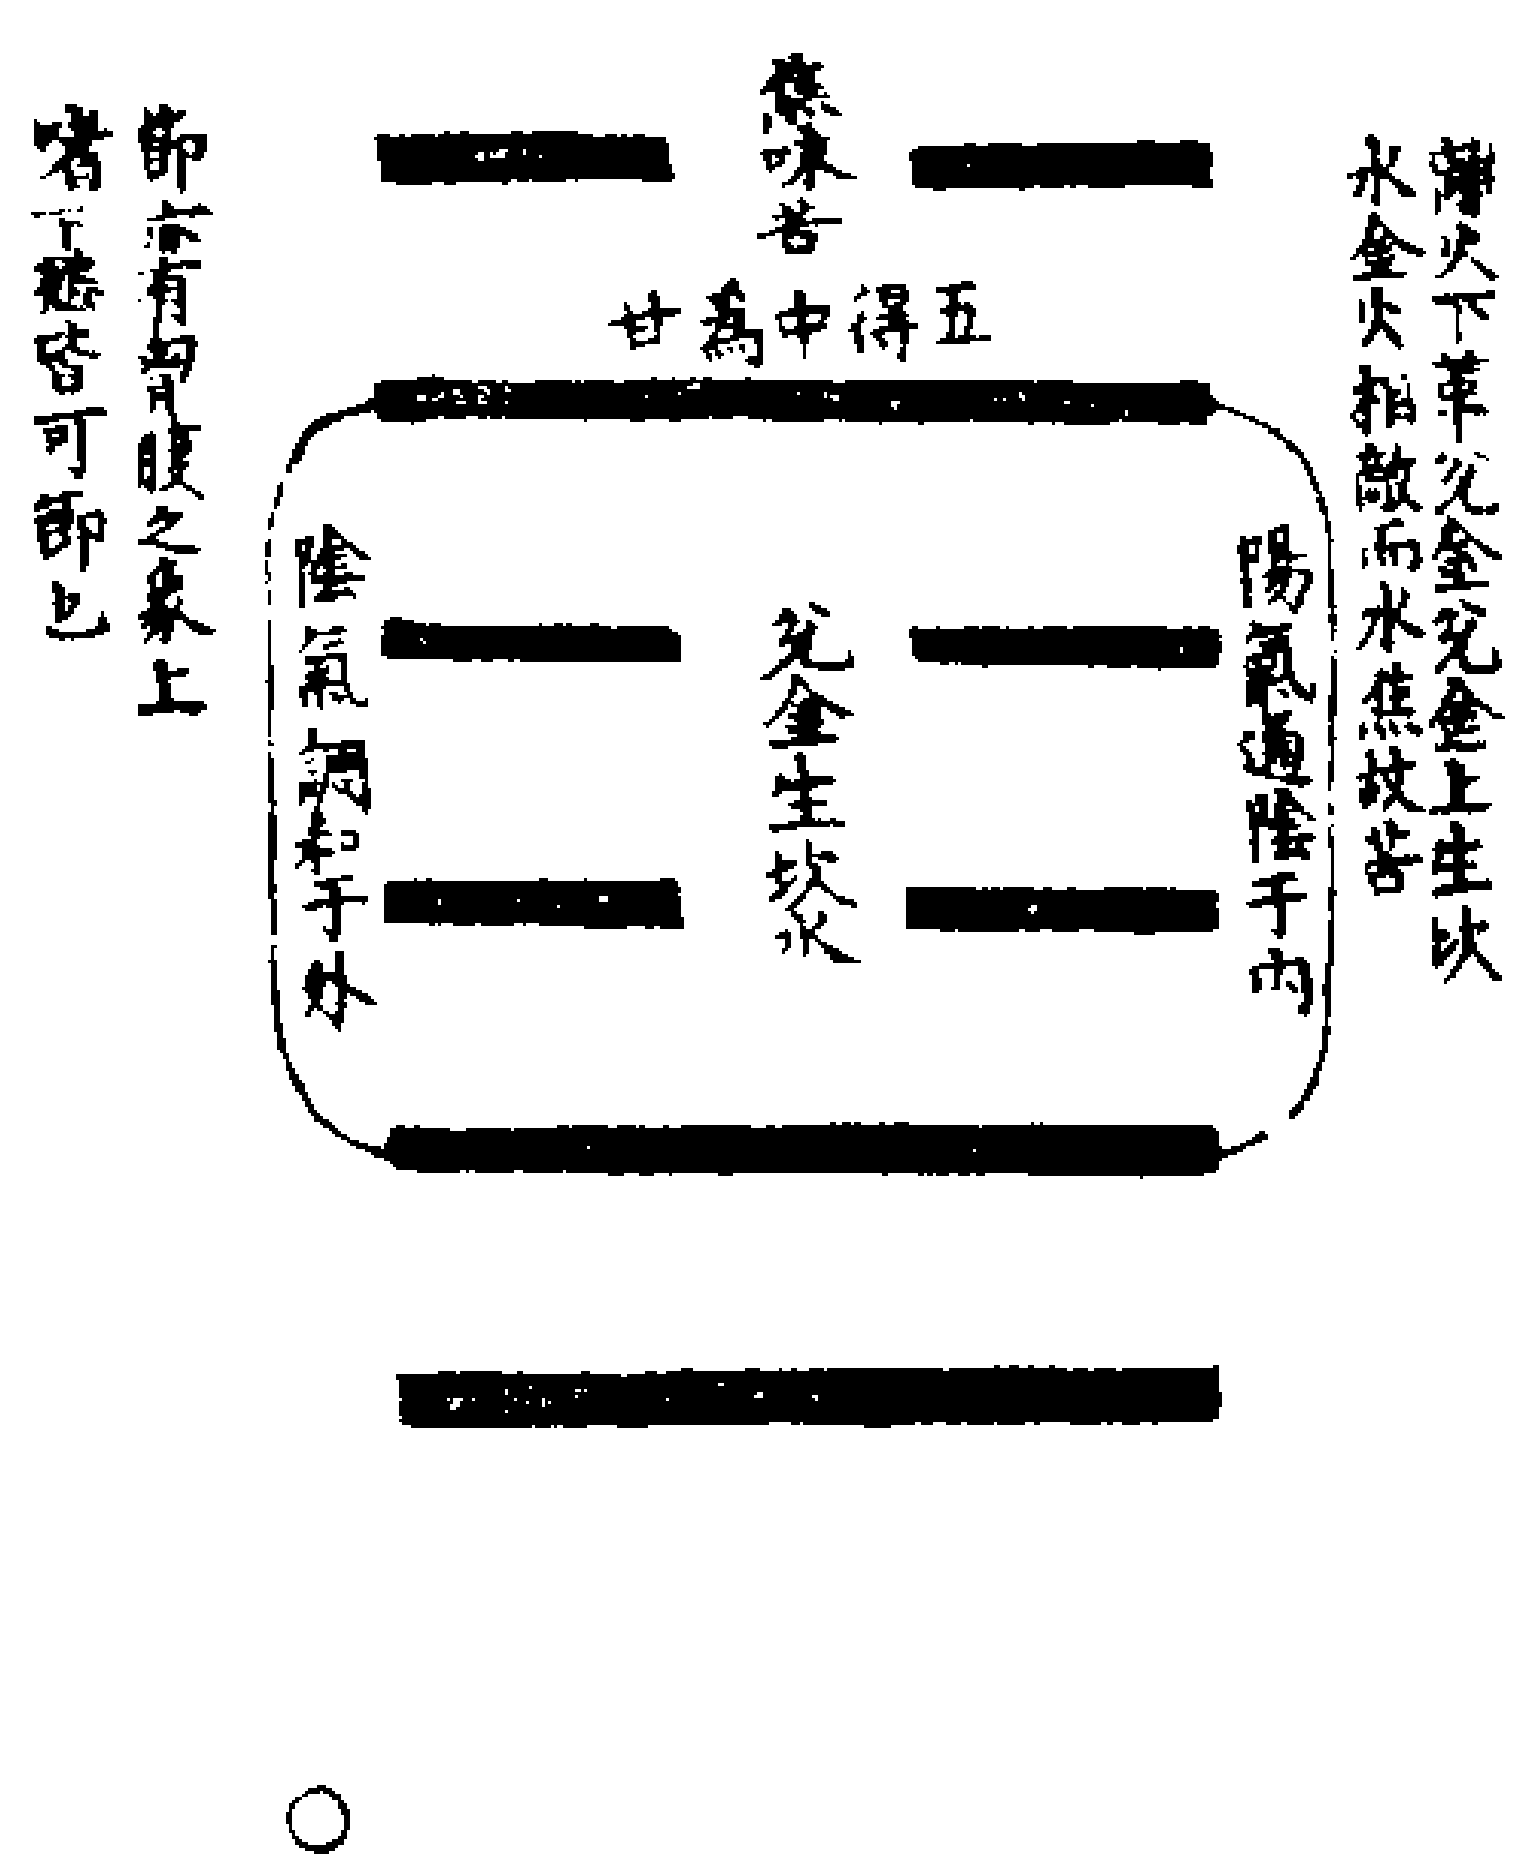 離火下革兊金兊金上生坎
水金火相敵而水焦故苦
焦味苦
五得中為甘
陽氣通陰于內
兊金生坎水
陰氣調和于外
節亦有胃腹之象上
嗜下慾皆可節也